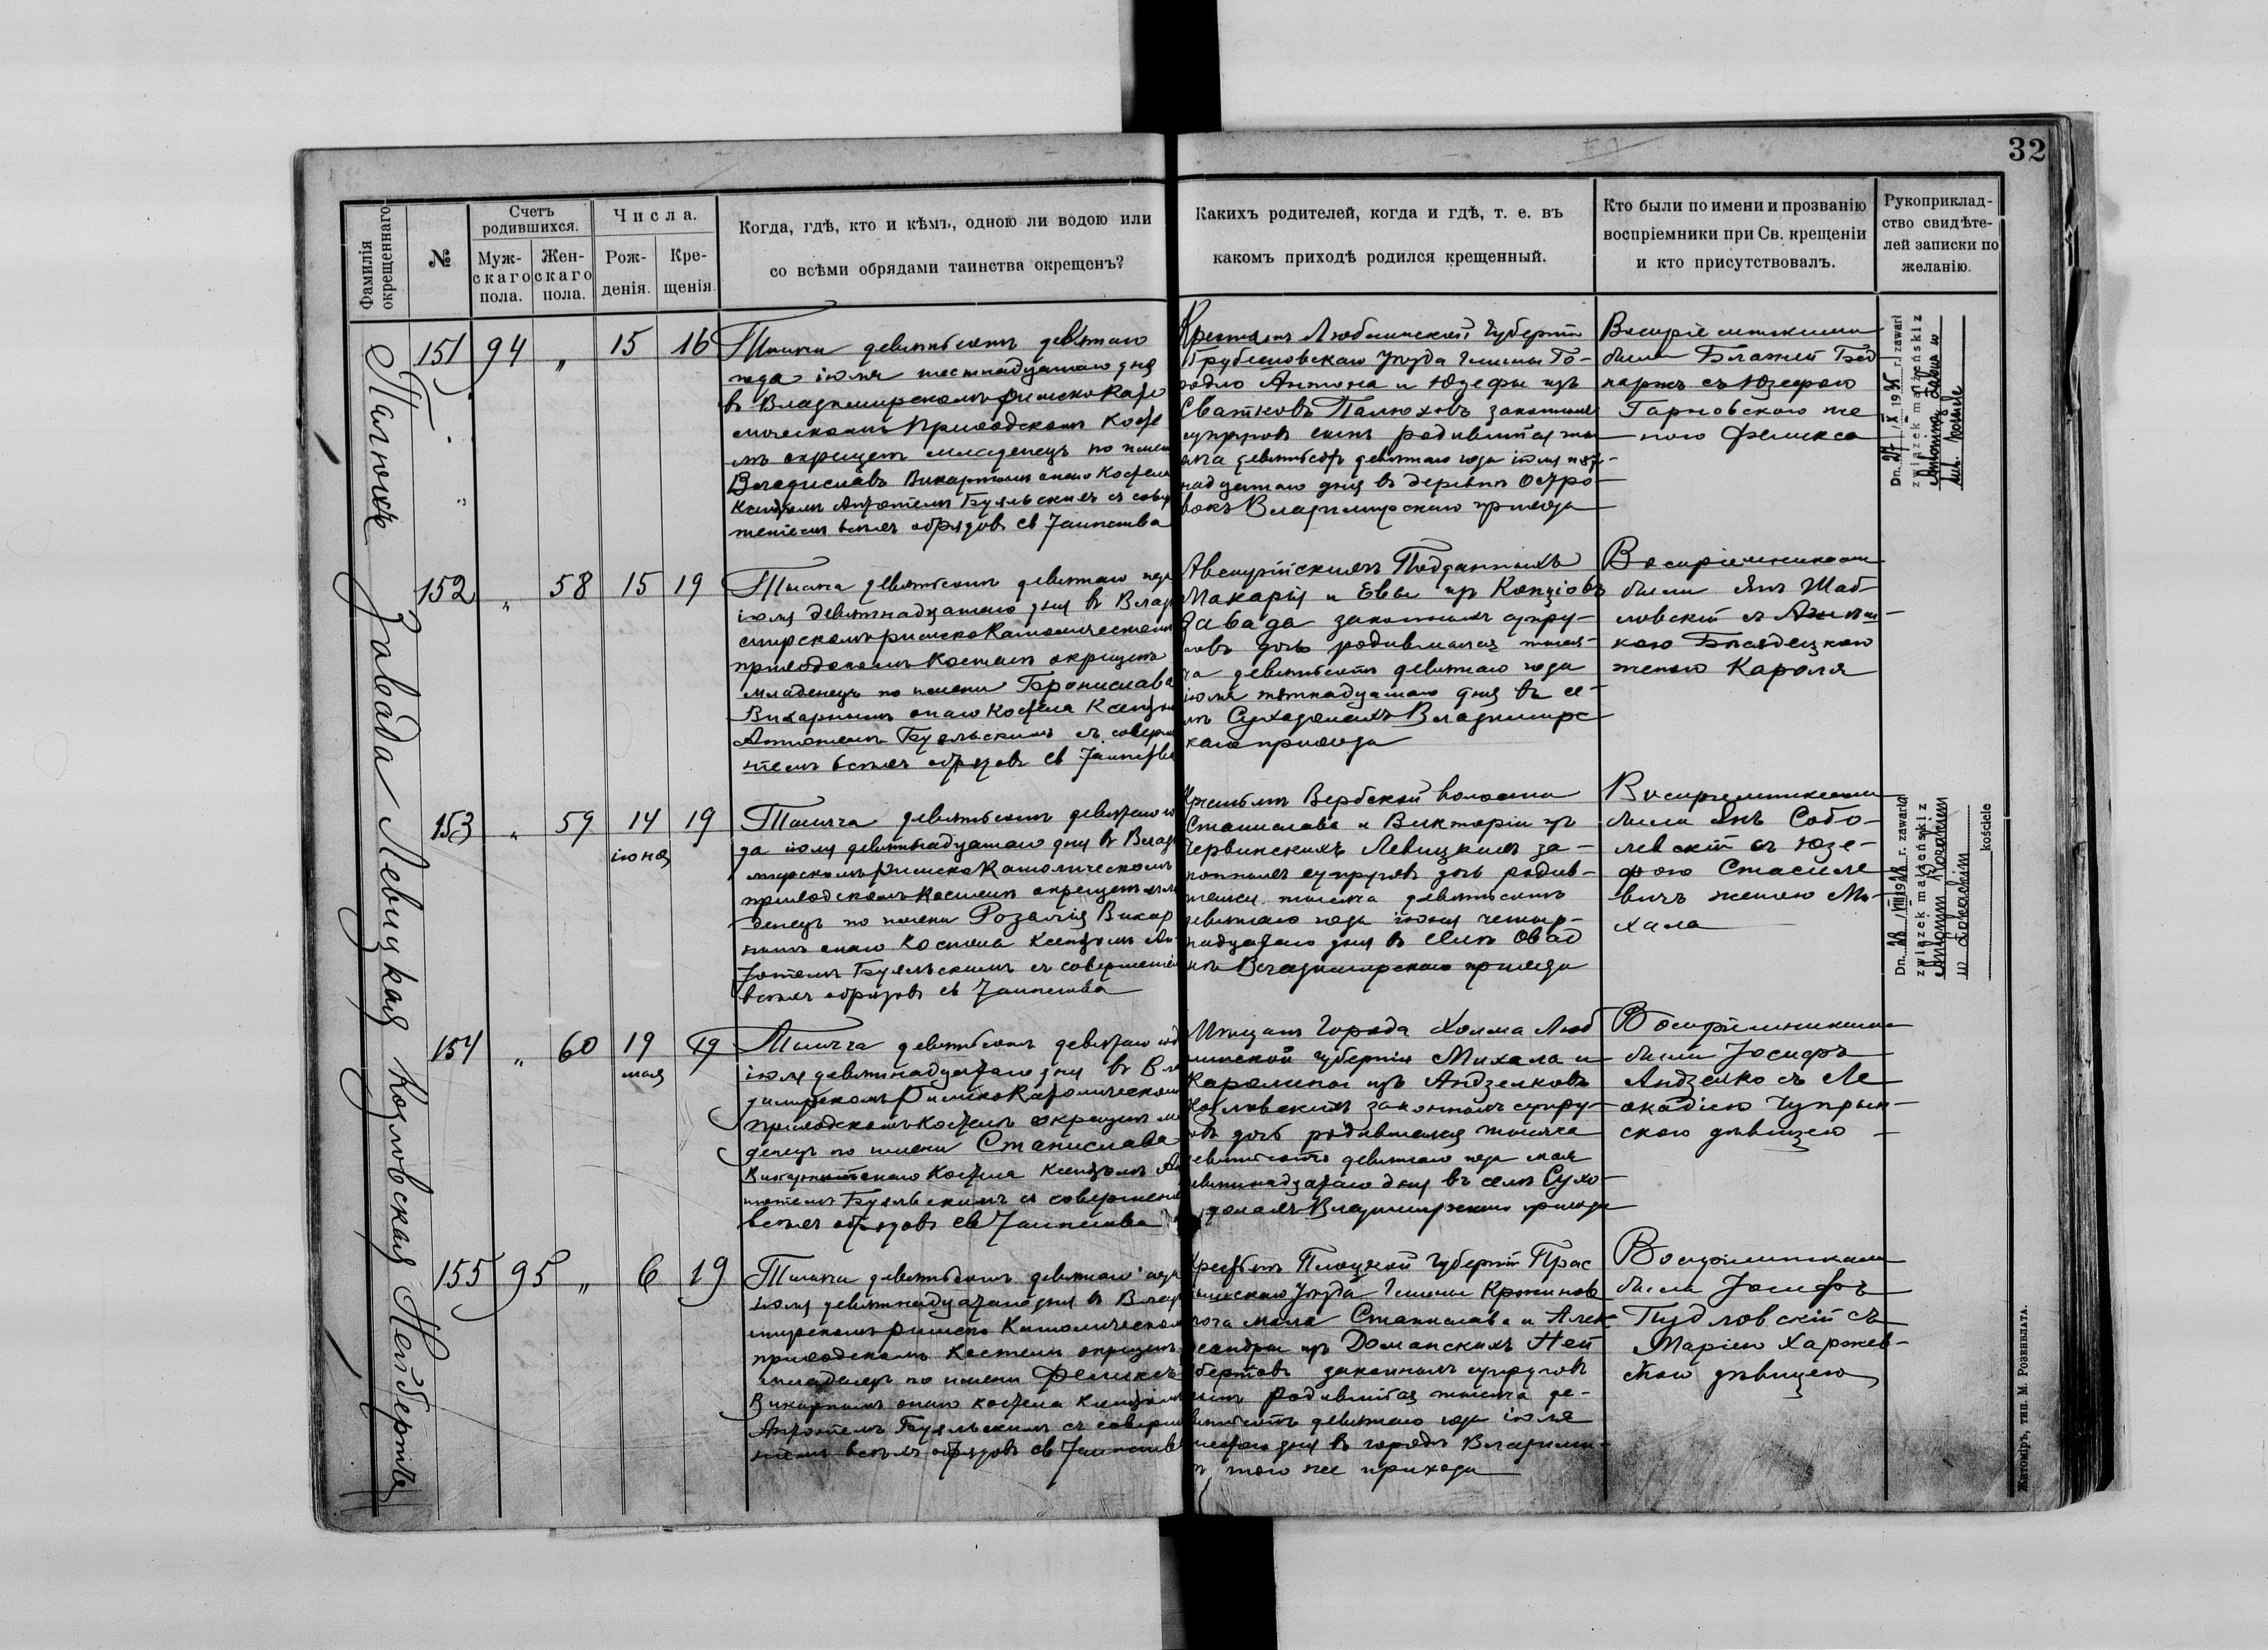 32
Фамилія окрещеннаго
№
Счетъ родившихся.
Муж-скаго пола.
Жен-скаго пола.
Числа.
Рож-денія.
Кре-щенія.
Когда, гдѣ, кто и кѣмъ, одною ли водою или
со всѣми обрядами таинства окрещенъ?
Каихъ родителей, когда и гдѣ, т. е. въ
какомъ приходѣ родился крещенный.
Кто были по имени и прозванію
воспріемники при Св. крещеніи
и кто присутствовалъ.
Рукоприклад-
ство свидѣте-
лей записки по
желанію.
Палюхъ
151 94 „ 15 16
Тысяча девятьсотъ девятаго
года іюля шестнадцатаго дня
в Владимирскомъ римско Като
лическомъ приходскомъ Косте
лѣ окрещенъ младенецъ по имени
Владиславъ Викарнымъ онаго Костела
Ксендзомъ Антоніемъ Буяльскимъ съ совер
шеніемъ всѣхъ обрядовъ св Таинства
Крестьянъ Люблинской Губерніи
Грубешовскаго Уѣзда Гмины Го-
родло Антона и Юзефы изъ
Сватковъ Палюховъ законныхъ
супруговъ сынъ родившійся ты
сяча девятьсотъ девятаго года іюля пят-
надцатаго дня въ деревнѣ Остро-
вокъ Владимирскаго прихода
Воспріемниками
были Блажей Бед
наржъ съ Юзефою
Гарновскою же
ною Феликса
Dn. 27/X 1935 r. zawarł
związek małżeński z
Antoniną
kościele
Завада
152 „ 58 15 19
Тысяча девятьсотъ девятаго года
іюля девятнадцатаго дня в Влади
мирскомъ римско Католическомъ
приходскомъ Костелѣ окрещенъ
младенецъ по имени Бронислава
Викарнымъ онаго Костела Ксендзомъ
Антоніемъ Буяльскимъ съ соверше
ніемъ всѣхъ обрядовъ св Таинства
Австрійскихъ Подданныхъ
Макарія и Евы изъ Концовъ
Завада законныхъ супру-
говъ дочь родившаяся тыся-
ча девятьсотъ девятаго года
іюля пятнадцатаго дня въ се-
лѣ Суходолахъ Владимирс
каго прихода
Воспріемниками
были Янъ Шаб-
ловскій съ
кою Бѣлядецкою
женою Кароля
Левицкая
153 „ 59 14 19
іюня
Тысяча девятьсотъ девятаго го
да іюля девятнадцатаго дня в Влади
мирскомъ Римско Католическомъ
приходскомъ Костелѣ окрещенъ мла
денецъ по имени Розалія Викар
нымъ онаго Костела Ксендзомъ Ан
тоніемъ Буяльскимъ съ совершеніемъ
всѣхъ обрядовъ св Таинства
Крестьянъ Вербской волости
Станислава и Викторіи изъ
Червинскихъ Левицкихъ за-
конныхъ супруговъ дочь родив-
шаяся тысяча девятьсотъ
девятаго года іюня четыр-
надцатаго дня в селѣ Овад
нѣ Владимирскаго прихода
Воспріемниками
были Янъ Собо-
левскій съ Юзе-
фою Стасиле
вичъ женою Ми-
хала
Dn. 28/VIII 1928 r. zawarła
związek małżeński z
Antonim
w
kościele
Козловская
154 „ 60 19 19
мая
Тысяча девятьсотъ девятаго года
іюля девятнадцатаго дня въ Вла
димирскомъ Римско Католическомъ
приходскомъ Костелѣ окрещенъ мла
денецъ по имени Станислава
Викарнымъ онаго Костела Ксендзомъ Ан
тоніемъ Буяльскимъ съ совершені
всѣхъ обрядовъ св Таинства
Мѣщанъ Города Холма Люб
линской губерніи Михала и
Каролины изъ Андзелковъ
Козловскихъ законныхъ супру-
говъ дочь родившаяся тысяча
девятьсотъ девятаго года мая
девятнадцатаго дня въ селѣ Сухо-
долахъ Владимирскаго прихода
Воспріемниками
были Іосифъ
Андзелко съ Ле
окадіею Чупрын-
скою дѣвицею
Нейбертъ
155 95 „ 6 19
Тысяча девятьсотъ девятаго года
іюля девятнадцатаго дня в Влади
мирскомъ римско Католическомъ
приходскомъ Костелѣ окрещенъ
младенецъ по имени Феликсъ
Викарнымъ онаго костела Ксендзомъ
Антоніемъ Буяльскимъ съ соверше
ніемъ всѣхъ обрядовъ св Таинства
Крестьянъ Плоцкой Губерніи Прас
нышскаго Уѣзда Гмины Кржинов
лога мала Станислава и Алек
сандры изъ Доманскихъ Ней
бертовъ законныхъ супруговъ
сынъ родившійся тысяча де-
вятьсотъ девятаго года іюля
шестого дня в городѣ Владими-
рѣ того же прихода
Воспріемниками
были Іосифъ
Пудловскій съ
Маріею Харжев-
скою дѣвицею
Житоміръ, тип. М. Розенблата.